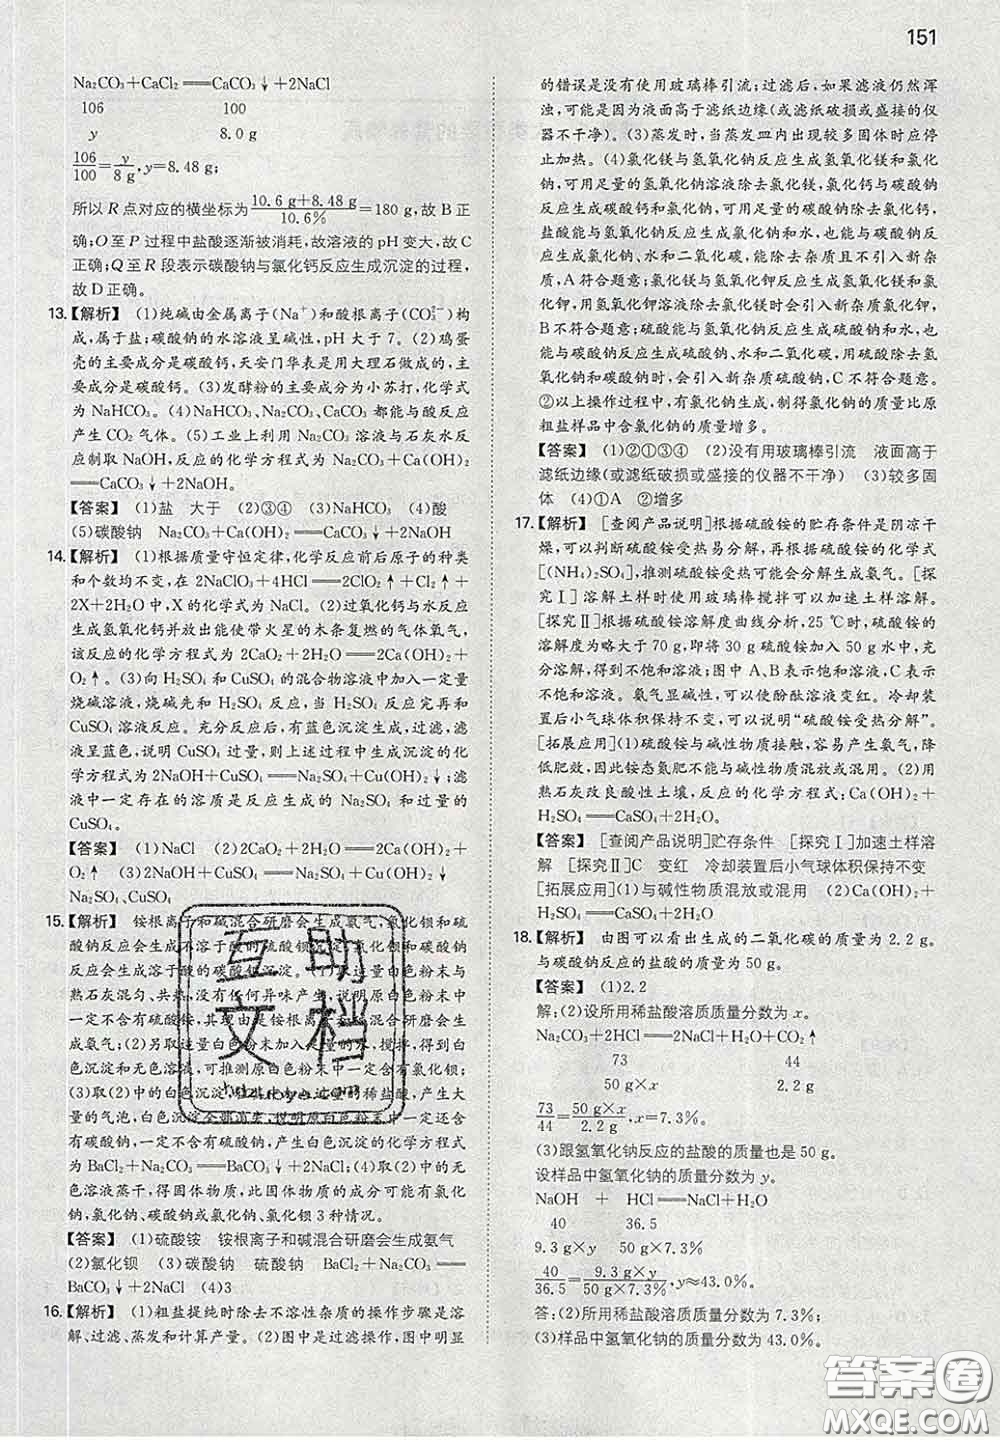 151
Na₂CO₃+CaCl₂══CaCO₃↓+2NaCl
106 100
y 8.0 g
106/100=y/8 g,y=8.48 g;
所以 R 点对应的横坐标为(10.6 g+8.48 g)/10.6%=180 g,故 B 正
确;O 至 P 过程中盐酸逐渐被消耗,故溶液的 pH 变大,故 C
正确;Q 至 R 段表示碳酸钠与氯化钙反应生成沉淀的过程,
故 D 正确。
13.【解析】 (1)纯碱由金属离子(Na⁺)和酸根离子(CO₃²⁻)构
成,属于盐;碳酸钠的水溶液呈碱性,pH 大于 7。(2)鸡蛋
壳的主要成分是碳酸钙,天安门华表是用大理石做成的,
主要成分是碳酸钙。(3)发酵粉的主要成分为小苏打,化学式
为 NaHCO₃。(4)NaHCO₃、Na₂CO₃、CaCO₃ 都能与酸反应
产生 CO₂ 气体。(5)工业上利用 Na₂CO₃ 溶液与石灰水反
应制取 NaOH,反应的化学方程式为 Na₂CO₃+Ca(OH)₂
══CaCO₃↓+2NaOH。
【答案】 (1)盐 大于 (2)③④ (3)NaHCO₃ (4)酸
(5)碳酸钠 Na₂CO₃+Ca(OH)₂══CaCO₃↓+2NaOH
14.【解析】 (1)根据质量守恒定律,化学反应前后原子的种类
和个数均不变,在 2NaClO₃+4HCl══2ClO₂↑+Cl₂↑+
2X+2H₂O 中,X 的化学式为 NaCl。(2)过氧化钙与水反应
生成氢氧化钙并放出能使带火星的木条复燃的气体氧气,
该反应的化学方程式为 2CaO₂+2H₂O══2Ca(OH)₂+
O₂↑。(3)向 H₂SO₄ 和 CuSO₄ 的混合物溶液中加入一定量
烧碱溶液,烧碱先和 H₂SO₄ 反应,当 H₂SO₄ 反应完再和
CuSO₄ 溶液反应。充分反应后,有蓝色沉淀生成,过滤,滤
液呈蓝色,说明 CuSO₄ 过量,则上述过程中生成沉淀的化
学方程式为 2NaOH+CuSO₄══Na₂SO₄+Cu(OH)₂↓;滤
液中一定存在的溶质是反应生成的 Na₂SO₄ 和过量的
CuSO₄。
【答案】 (1)NaCl (2)2CaO₂+2H₂O══2Ca(OH)₂+
O₂↑ (3)2NaOH+CuSO₄══Na₂SO₄+Cu(OH)₂↓
Na₂SO₄、CuSO₄
15.【解析】 铵根离子和碱混合研磨会生成氨气,氯化钡和硫
酸钠反应会生成不溶于酸的硫酸钡沉淀,氯化钡和碳酸钠
反应会生成溶于酸的碳酸钡沉淀。(1)取适量白色粉末与
熟石灰混匀、共热,没有任何异味产生,说明原白色粉末中
一定不含有硫酸铵,其理由是铵根离子和碱混合研磨会生
成氨气;(2)另取适量白色粉末加入足量的水,搅拌,得到白
色沉淀和无色溶液,说明原白色粉末中一定含有氯化钡;
(3)取(2)中的白色沉淀,其中加入足量的稀盐酸,产生大量
的气泡,白色沉淀全部消失,说明原白色粉末中一定
含有碳酸钠,一定不含硫酸钠,产生白色沉淀的化学方程式
为 BaCl₂+Na₂CO₃══BaCO₃↓+2NaCl;(4)取(2)中的无
色溶液蒸干,得固体物质,此固体物质的成分可能有氯化
钠,氯化钠、碳酸钠或氯化钠、氯化钡 3 种情况。
【答案】 (1)硫酸铵 铵根离子和碱混合研磨会生成氨气
(2)氯化钡 (3)碳酸钠 硫酸钠 BaCl₂+Na₂CO₃══
BaCO₃↓+2NaCl (4)3
16.【解析】 (1)粗盐提纯时除去不溶性杂质的操作步骤是溶
解、过滤、蒸发和计算产量。(2)图中是过滤操作,图中明显
的错误是没有使用玻璃棒引流;过滤后,如果滤液仍然浑
浊,可能是因为液面高于滤纸边缘(或滤纸破损或盛接的仪
器不干净)。(3)蒸发时,当蒸发皿内出现较多固体时应停
止加热。(4)氯化镁与氢氧化钠反应生成氢氧化镁和氯化
钠,可用足量的氢氧化钠溶液除去氯化镁,氯化钙与碳酸钠
反应生成碳酸钙和氯化钠,可用足量的碳酸钠除去氯化钙,
盐酸能与氢氧化钠反应生成氯化钠和水,也能与碳酸钠反
应生成氯化钠、水和二氧化碳,能除去杂质且不会引入新杂
质,A 符合题意;氯化镁与氢氧化钾反应生成氢氧化镁和氯化
钾,用氢氧化钾溶液除去氯化镁时会引入新杂质氯化钾,
B 不符合题意;硫酸能与氢氧化钠反应生成硫酸钠和水,也
能与碳酸钠反应生成硫酸钠、水和二氧化碳,用硫酸除去氢
氧化钠和碳酸钠时,会引入新杂质硫酸钠,C 不符合题意。
②以上操作过程中,有氯化钠生成,制得氯化钠的质量比原
粗盐样品中含氯化钠的质量增多。
【答案】 (1)②①③④ (2)没有用玻璃棒引流 液面高于
滤纸边缘(或滤纸破损或盛接的仪器不干净) (3)较多固
体 (4)①A ②增多
17.【解析】 [查阅产品说明]根据硫酸铵的贮存条件是阴凉干
燥,可以判断硫酸铵受热易分解,再根据硫酸铵的化学式
[(NH₄)₂SO₄],推测硫酸铵受热可能会分解生成氨气。[探
究Ⅰ]溶解土样时使用玻璃棒搅拌可以加速土样溶解。
[探究Ⅱ]根据硫酸铵溶解度曲线分析,25 ℃时,硫酸铵的
溶解度为略大于 70 g,即将 30 g 硫酸铵加入 50 g 水中,充
分溶解,得到不饱和溶液;图中 A、B 表示饱和溶液,C 表示
不饱和溶液。氨气显碱性,可以使酚酞溶液变红。冷却装
置后小气球体积保持不变,可以说明“硫酸铵受热分解”。
[拓展应用](1)硫酸铵与碱性物质接触,容易产生氨气,降
低肥效,因此铵态氮肥不能与碱性物质混放或混用。(2)用
熟石灰改良酸性土壤,反应的化学方程式:Ca(OH)₂+
H₂SO₄══CaSO₄+2H₂O。
【答案】 [查阅产品说明]贮存条件 [探究Ⅰ]加速土样溶
解 [探究Ⅱ]C 变红 冷却装置后小气球体积保持不变
[拓展应用](1)与碱性物质混放或混用 (2)Ca(OH)₂+
H₂SO₄══CaSO₄+2H₂O
18.【解析】 由图可以看出生成的二氧化碳的质量为 2.2 g。
与碳酸钠反应的盐酸的质量为 50 g。
【答案】 (1)2.2
解:(2)设所用稀盐酸溶质质量分数为 x。
Na₂CO₃+2HCl══2NaCl+H₂O+CO₂↑
73 44
50 g×x 2.2 g
73/44=(50 g×x)/2.2 g,x=7.3%。
(3)跟氢氧化钠反应的盐酸的质量也是 50 g。
设样品中氢氧化钠的质量分数为 y。
NaOH + HCl══NaCl+H₂O
40 36.5
9.3 g×y 50 g×7.3%
40/36.5=(9.3 g×y)/(50 g×7.3%),y≈43.0%。
答:(2)所用稀盐酸溶质质量分数为 7.3%;
(3)样品中氢氧化钠的质量分数为 43.0%。
互助
文档
答案圈
MXQE.COM